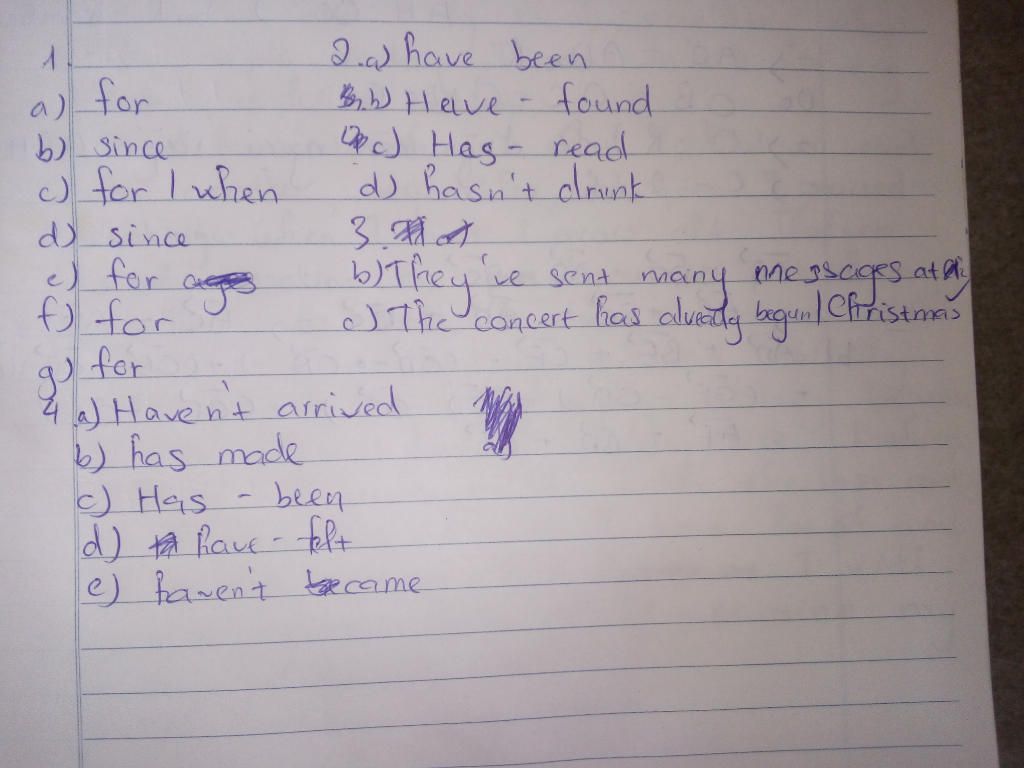 1. 2.a) have been
a) for b) Have - found
b) since c) Has - read
c) for / when d) hasn't drunk
d) since 3.
e) for b) They've sent many messages at
f) for c) The concert has already begun / Christmas
g) for
4 a) Haven't arrived
b) has made
c) Has - been
d) have - felt
e) haven't came